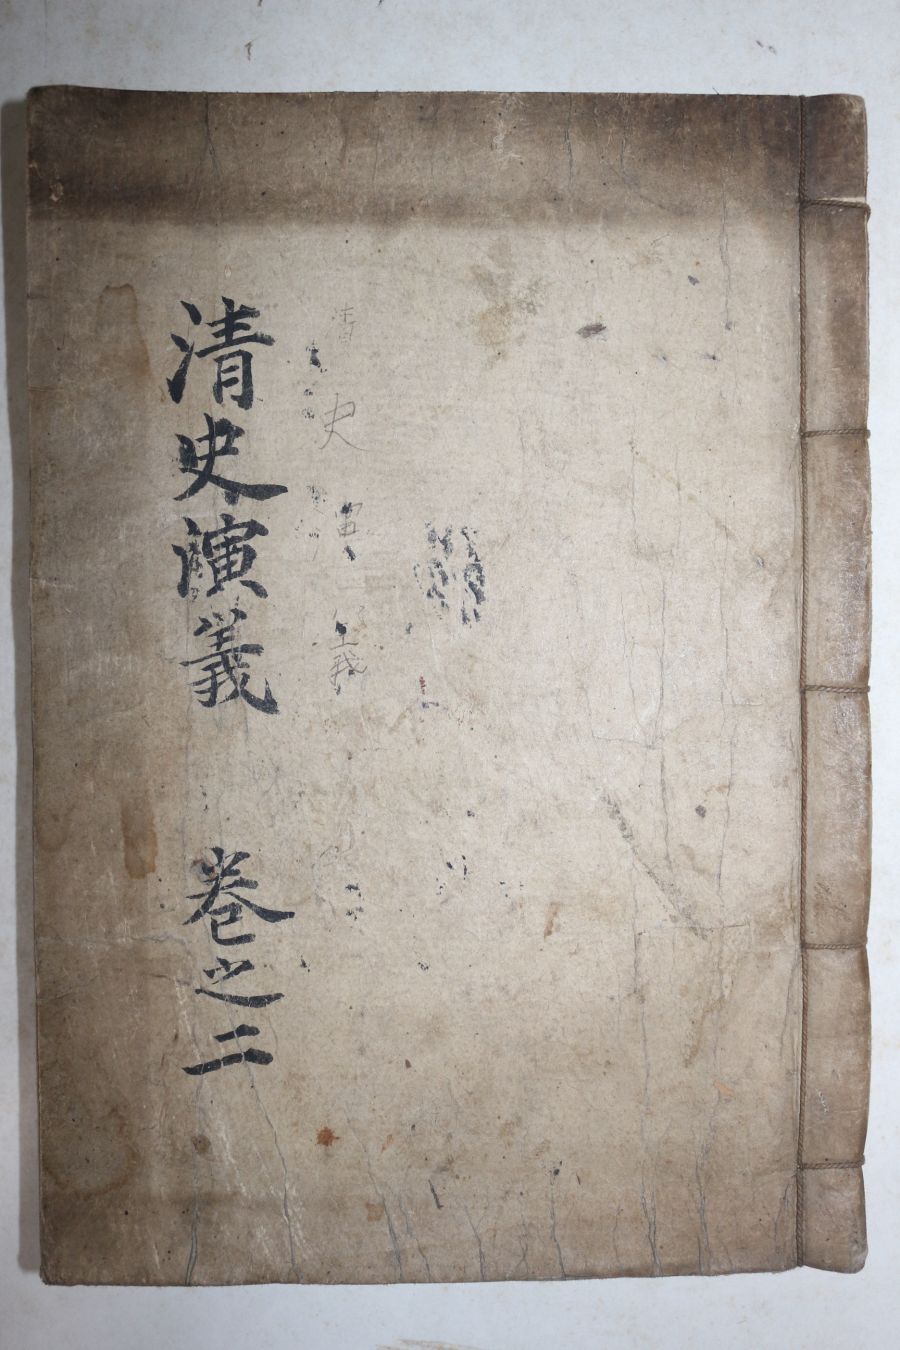 清史演義 卷之二
清史演義